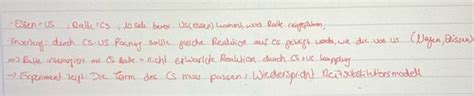 - Essen = US , Ratte = CS , 10 sek bevor US (essen) kommt, wird Ratte reingefahren
durch CS-US Paarung sollte gleiche Reaktion auf CS gezeigt werden, wie die von US (Nagen, Beissen)
=> Ratte interagiert mit CS Ratte = nicht erwartete Reaktion durch CS+US kopplung
-> Experiment zeigt: Die Form des CS muss passen, Wiederspricht Reizsubstitutionsmodell